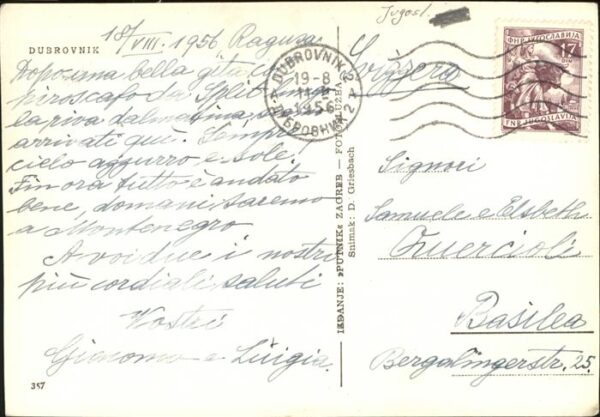 Jugosl.
18/VIII. 1956 Ragusa
DUBROVNIK
Dopo una bella gita in
piroscafo da Split lungo
la riva dalmatina siamo
arrivati qui. Sempre
cielo azzurro e sole.
Fin ora tutto è andato
bene, domani saremo
a Montenegro
A voi due i nostri
più cordiali saluti
Vostri
Giacomo e Luigia.
357
IZDANJE: »PUTNIK« ZAGREB — FOTO
Snimak: D. Griesbach
DUBROVNIK 2
19-8
1956
ДУБРОВНИК 2
ФНР ЈУГОСЛАВИЈА
17
DIN
FNR JUGOSLAVIJA
Svizzera
Signori
Samuele e Elsbeth
Quercioli
Basilea
Bergalingerstr. 25.